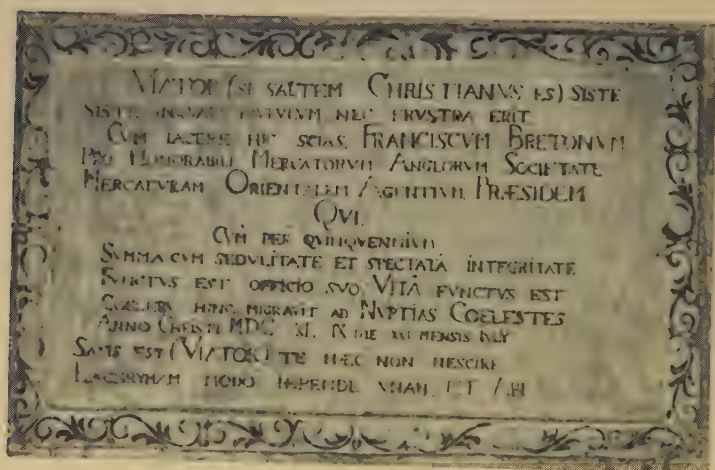 VIATOR (SI SALTEM CHRISTIANVS ES) SISTE
NEC FRVSTRA ERIT
CVM HIC SCIAS FRANCISCVM BRETONVM
PRO HONORABILI MERCATORVM ANGLORVM SOCIETATE
MERCATVRAM ORIENTALEM AGENTIVM PRÆSIDEM
QVI
CVM PER QVINQVENNIVM
SVMMA CVM SEDVLITATE ET SPECTATA INTEGRITATE
FVNCTVS EST OFFICIO SVO VITA FVNCTVS EST
COELEBS HINC MIGRAVIT AD NVPTIAS COELESTES
ANNO CHRISTI MDC XL IX DIE XXI MENSIS IVLY
SATIS EST (VIATOR) TE HÆC NON NESCIRE
LACHRYMAM MODO IMPENDE VNAM ET ABI